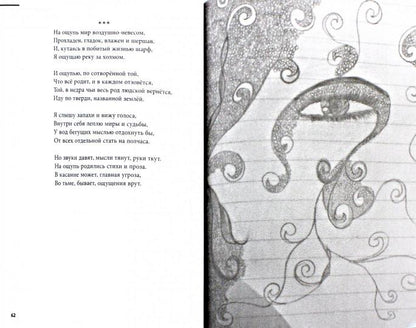 * * *
На ощупь мир воздушно-невесом,
Прохладен, гладок, влажен и шершав.
И, кутаясь в побитый жизнью шарф,
Я ощущаю реку за холмом.
И ощупью, по сотворённой той,
Что всё родит, и в каждом отзовётся,
Той, в недра чьи весь род людской вернётся,
Иду по тверди, названной землёй.
Я слышу запахи и вижу голоса,
Внутри себя леплю миры и судьбы,
У вод бегущих мыслью отдохнуть бы,
От всех отдельной стать на полчаса.
Но звуки давят, мысли тянут, руки ткут.
На ощупь родились стихи и проза.
В касание может, главная угроза,
Во тьме, бывает, ощущения врут.
62